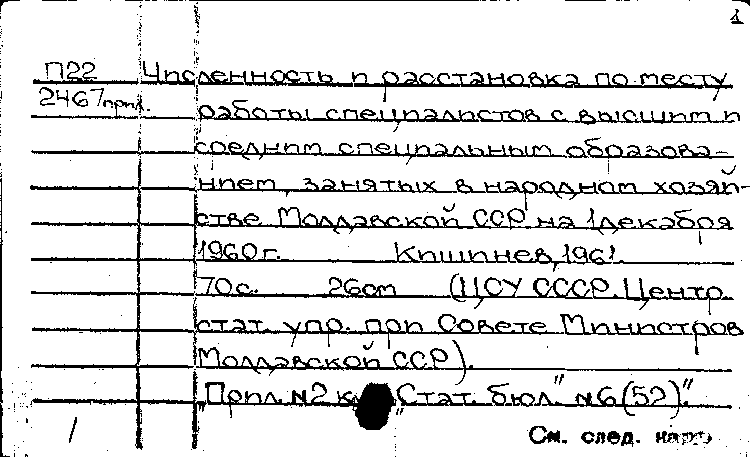 1
П22 Численность и расстановка по месту
2467прил. работы специалистов с высшим и
средним специальным образова-
нием, занятых в народном хозяй-
стве Молдавской ССР на 1 декабря
1960г. Кишинев, 1961.
70с. 26см (ЦСУ СССР. Центр.
стат. упр. при Совете Министров
Молдавской ССР).
"Прил. №2 к "Стат. бюл." №6(52)."
/ См. след. карт.